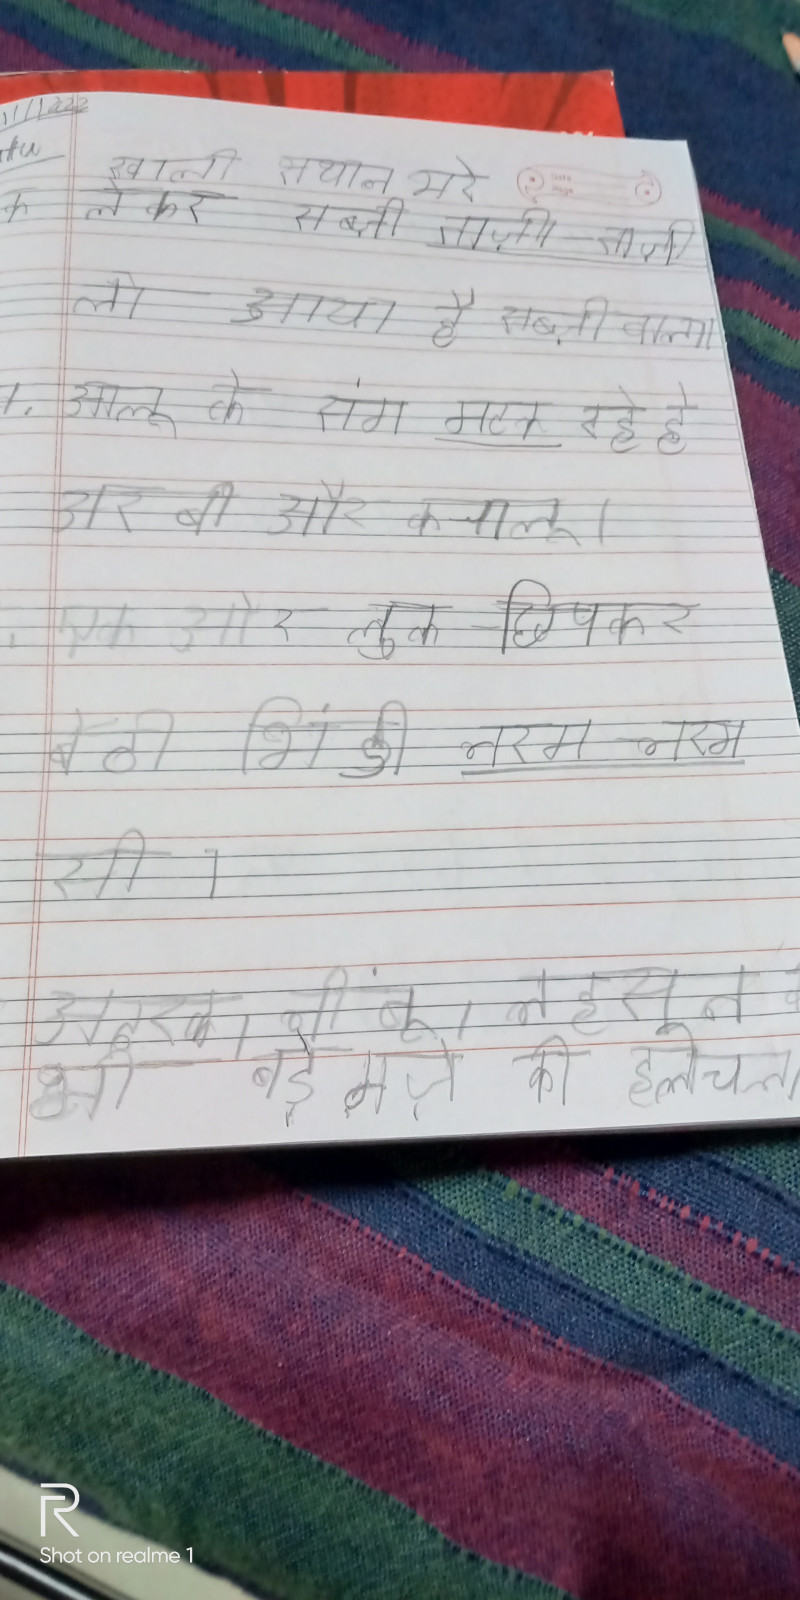 11/1/2022
खाली सथान भरे
क ले कर सब्ज़ी ताज़ी-ताज़ी
लो आया है सब्ज़ी वाला
आलू के संग मटक रहे है
अर बी और कचालू।
एक ओर लुक-छिपकर
बैठी भिंडी नरम-नरम
सी।
अदरक, नींबू, लहसून
भी बड़े मज़े की
Shot on realme 1